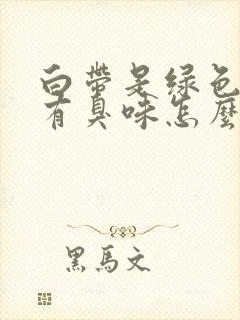 白带是绿色
有臭味怎麽
黑馬文